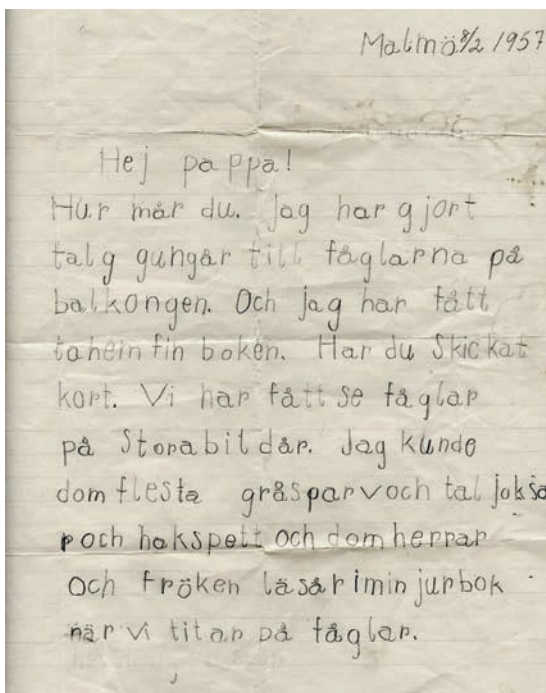 Malmö 8/2 1957
Hej pappa!
Hur mår du. Jag har gjort
talg gungår till fåglarna på
balkongen. Och jag har fått
tahem fin boken. Har du Skickat
kort. Vi har fått se fåglar
på Stora bildår. Jag kunde
dom flesta gråsparvoch tal joksa
roch hakspett och domherrar
och Fröken läsår imin jurbok
när vi titar på fåglar.